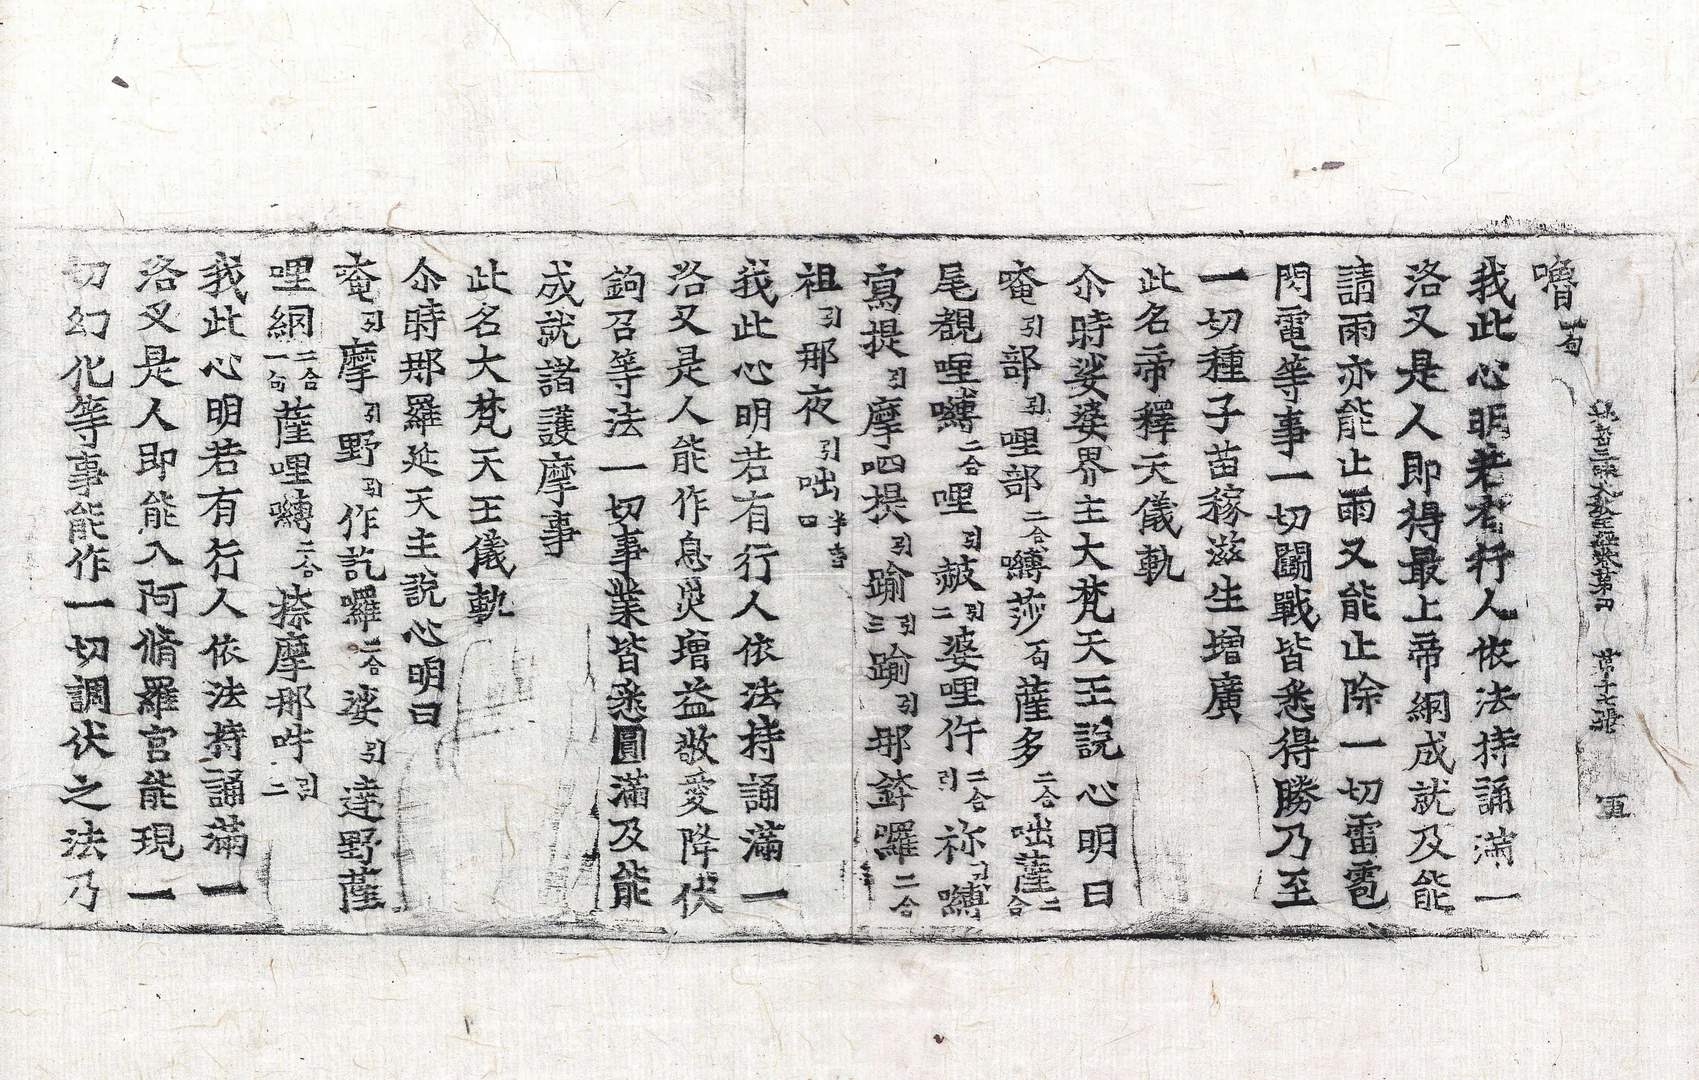 秘密三昧大教王經卷第四　第十七張
嚕一句
我此心明若有行人依法持誦滿一
洛叉是人即得最上帝網成就及能
請雨亦能止雨又能止除一切雷雹
閃電等事一切鬪戰皆悉得勝乃至
一切種子苗稼滋生增廣
此名帝釋天儀軌
尒時娑婆界主大梵天王說心明曰
唵引部引哩部二合嚩莎句薩多二合咄薩二合
尾覩哩嚩二合哩引赧引二婆哩仵二合引祢引嚩
寫提引摩呬提引踰引三踰引那鉢囉二合
祖引那夜引咄半音四
我此心明若有行人依法持誦滿一
洛叉是人能作息災增益敬愛降伏
鉤召等法一切事業皆悉圓滿及能
成就諸護摩事
此名大梵天王儀軌
尒時那羅延天主說心明曰
唵引摩引野引作訖囉二合娑引達野薩
哩網二合一句薩哩嚩二合捺摩那吽引二
我此心明若有行人依法持誦滿一
洛叉是人即能入阿脩羅宮能現一
切幻化等事能作一切調伏之法乃